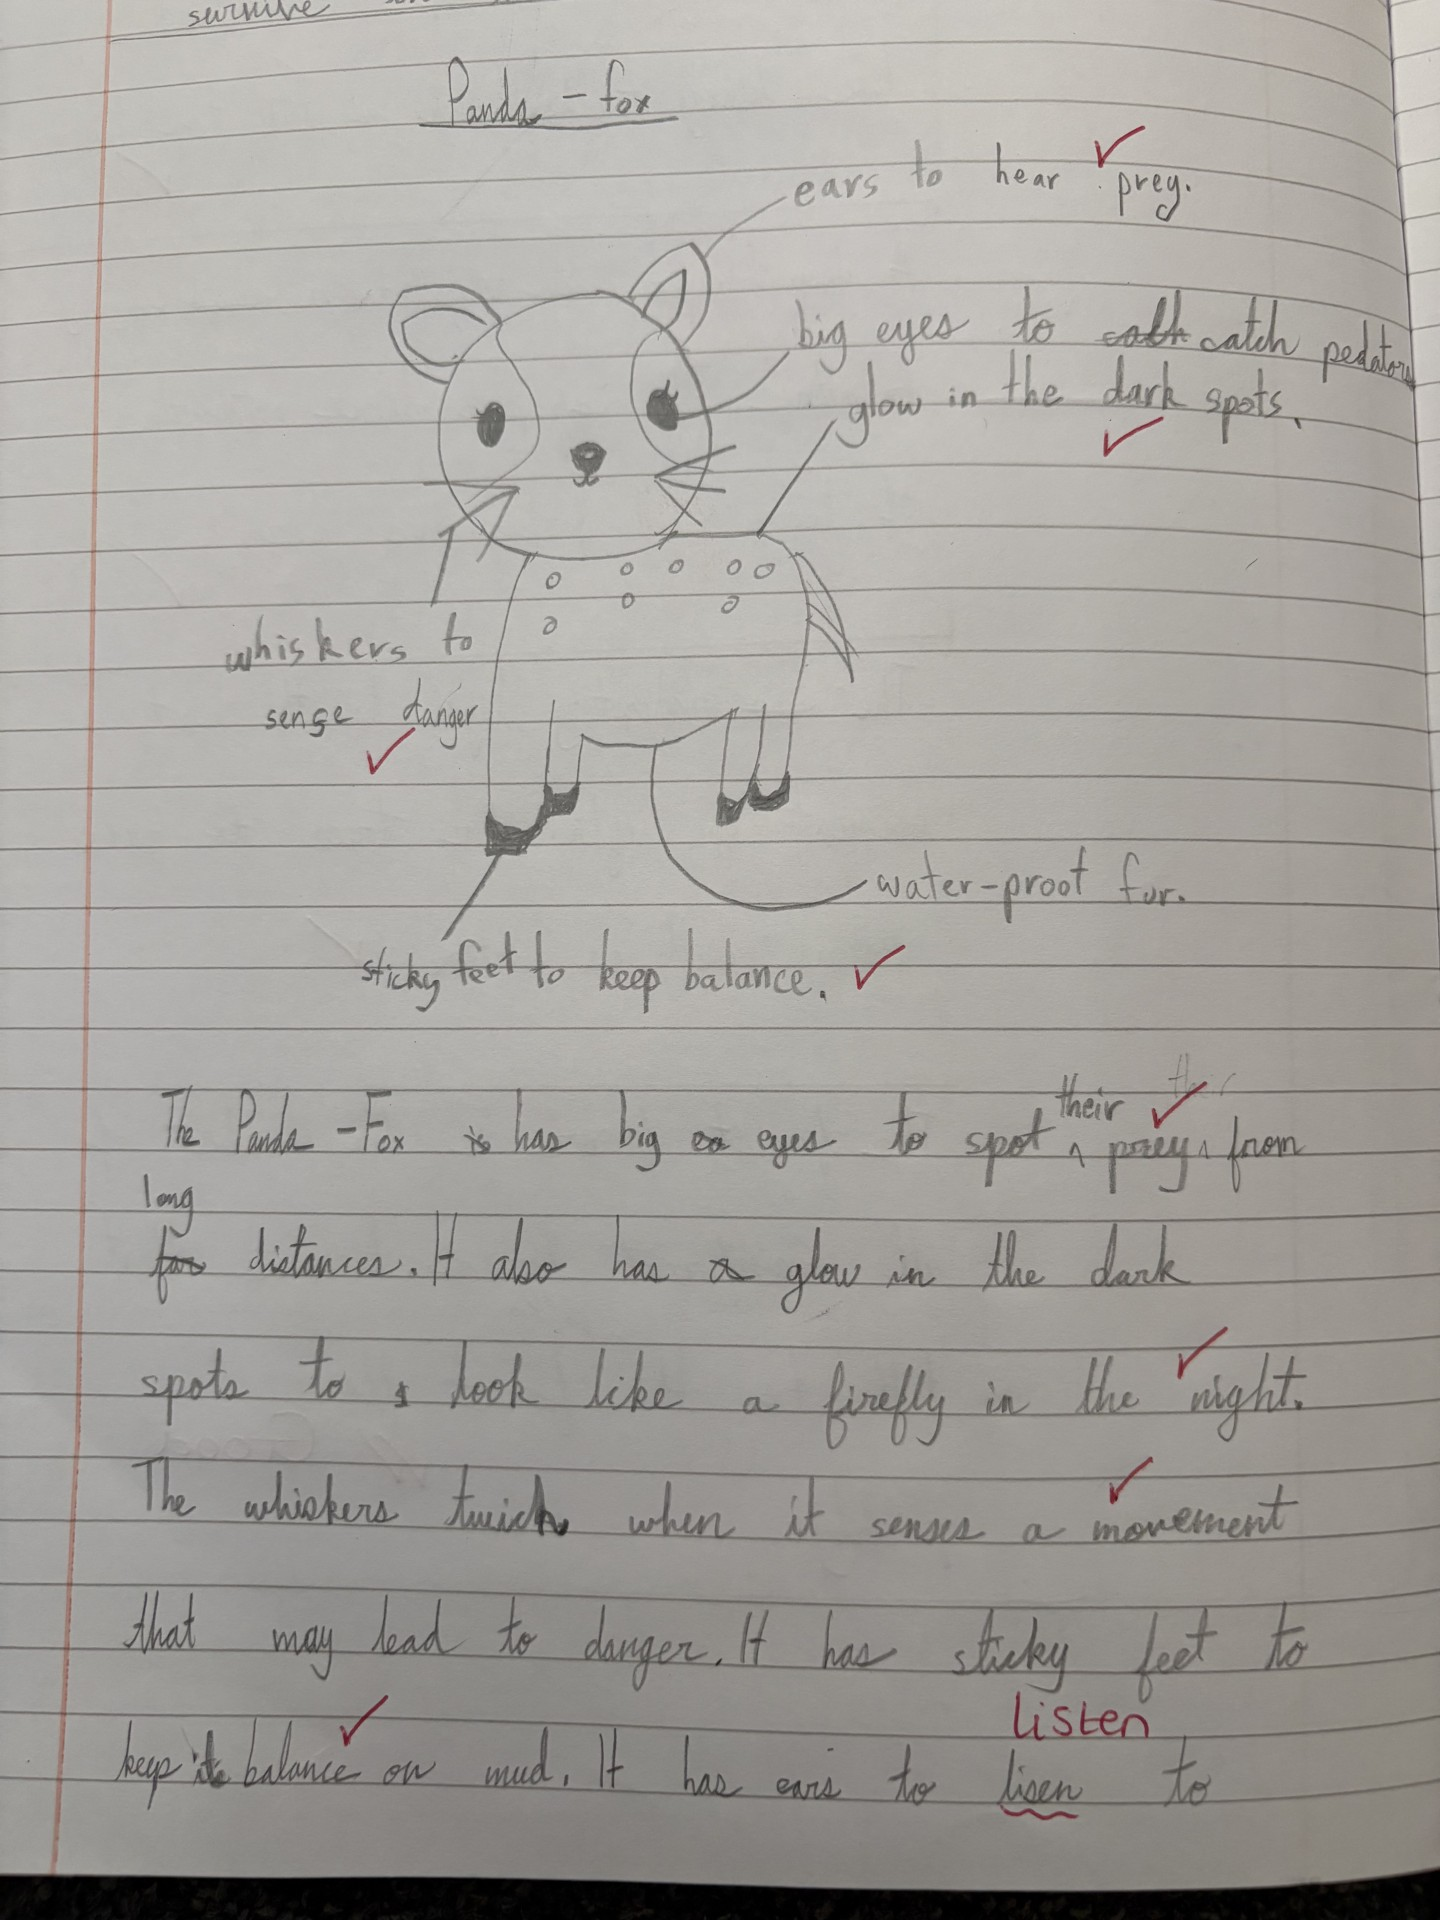 survive
Panda - fox
ears to hear prey.
big eyes to catch pedators
glow in the dark spots.
whiskers to
sense danger
water-proof fur.
sticky feet to keep balance.
their
The Panda - Fox is has big ea eyes to spot ^ prey ^ from
long
far distances. It also has a glow in the dark
spots to s look like a firefly in the night.
The whiskers twich when it senses a movement
that may lead to danger. It has sticky feet to
listen
keep it balance on mud. It has ears to lisen to